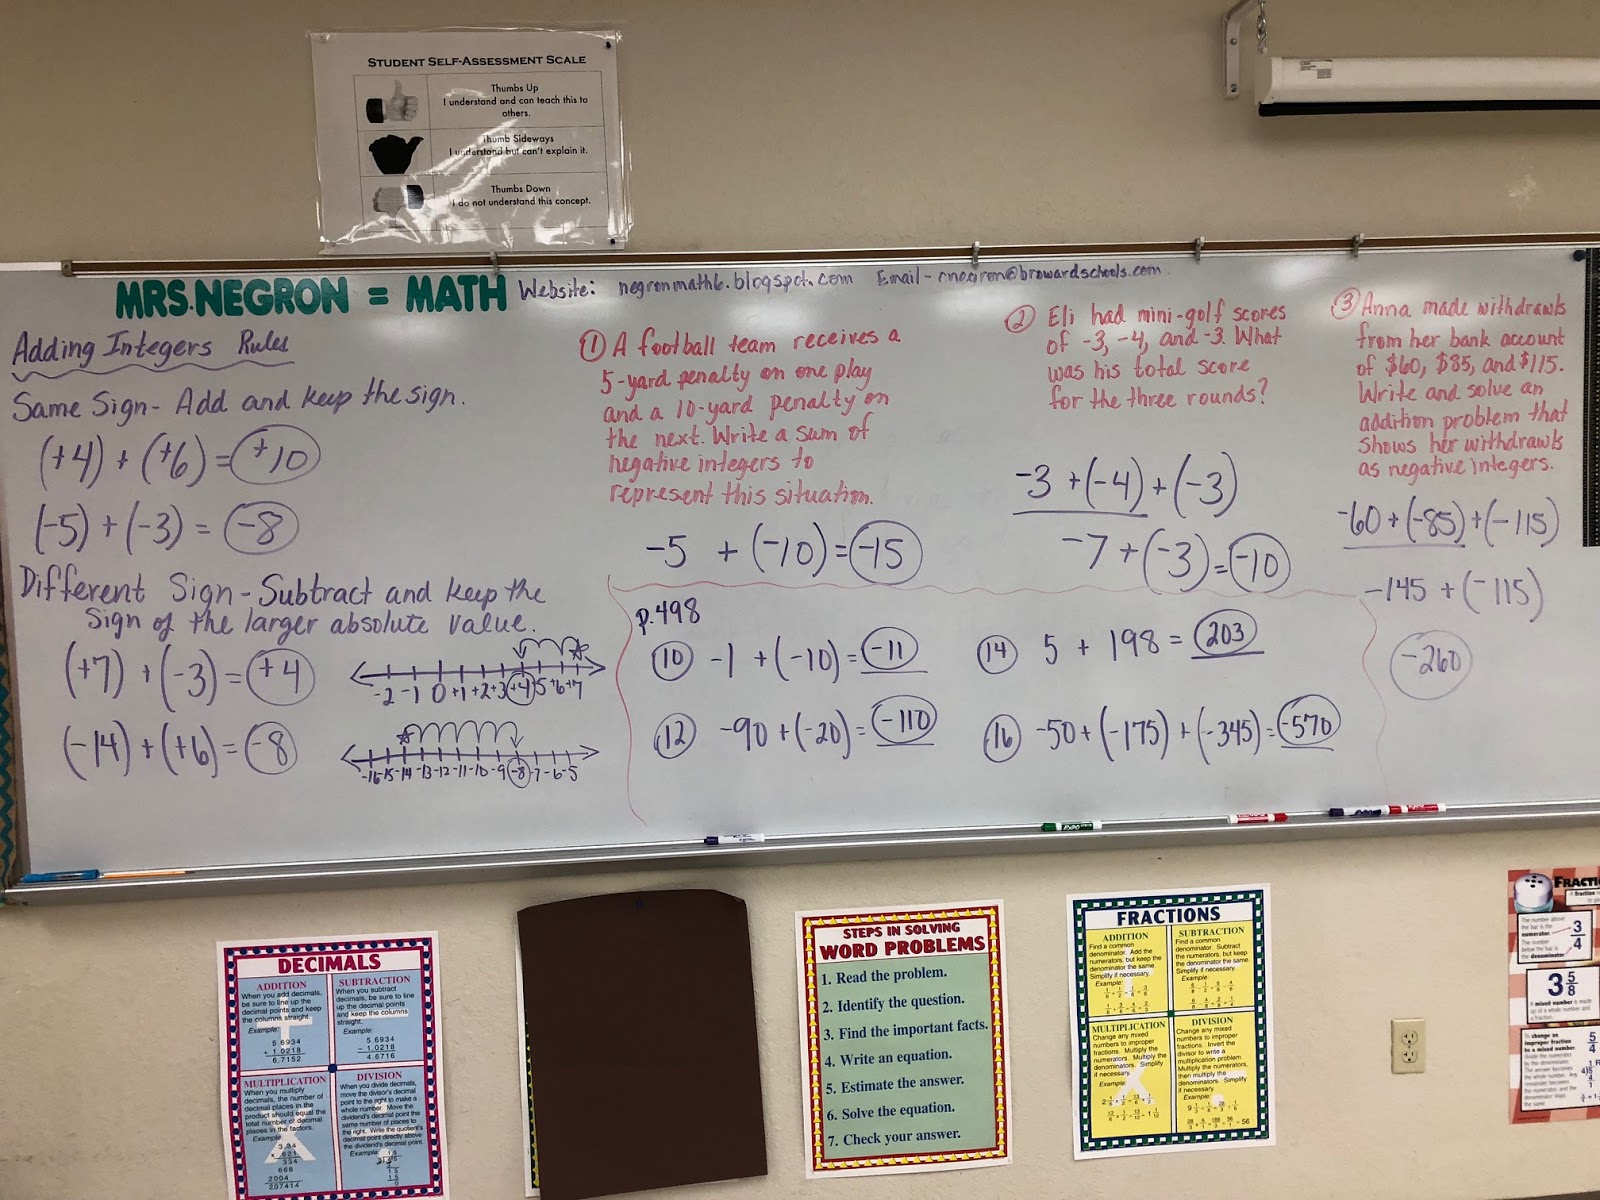 STUDENT SELF-ASSESSMENT SCALE
Thumbs Up
I understand and can teach this to
others.
Thumb Sideways
I understand but can't explain it.
Thumbs Down
I do not understand this concept.
MRS. NEGRON = MATH
Website: negronmath6.blogspot.com Email - cnegron@browardschools.com
Adding Integers Rules
Same Sign - Add and keep the sign.
(+4) + (+6) = +10
(-5) + (-3) = -8
Different Sign - Subtract and keep the
sign of the larger absolute value.
(+7) + (-3) = +4
-2 -1 0 +1 +2 +3 +4 +5 +6 +7
(-14) + (+6) = -8
-16 -15 -14 -13 -12 -11 -10 -9 -8 -7 -6 -5
① A football team receives a
5-yard penalty on one play
and a 10-yard penalty on
the next. Write a sum of
negative integers to
represent this situation.
-5 + (-10) = -15
② Eli had mini-golf scores
of -3, -4, and -3. What
was his total score
for the three rounds?
-3 + (-4) + (-3)
-7 + (-3) = -10
③ Anna made withdrawls
from her bank account
of $60, $85, and $115.
Write and solve an
addition problem that
shows her withdrawls
as negative integers.
-60 + (-85) + (-115)
-145 + (-115)
-260
p.498
⑩ -1 + (-10) = -11
⑫ -90 + (-20) = -110
⑭ 5 + 198 = 203
⑯ -50 + (-175) + (-345) = -570
EXPO
DECIMALS
ADDITION
When you add decimals,
be sure to line up the
decimal points and keep
the columns straight.
Example:
5.6934
+ 1.0218
6.7152
SUBTRACTION
When you subtract
decimals, be sure to line
up the decimal points
and keep the columns
straight.
Example:
5.6934
- 1.0218
4.6716
MULTIPLICATION
When you multiply
decimals, the number of
decimal places in the
product should equal the
total number of decimal
places in the factors.
Example:
334
668
2004
207414
DIVISION
When you divide decimals,
move the divisor's decimal
point to the right to make a
whole number. Move the
dividend's decimal point the
same number of places to
the right. Write the quotient's
decimal point directly above
the dividend's decimal point.
Example:
STEPS IN SOLVING
WORD PROBLEMS
1. Read the problem.
2. Identify the question.
3. Find the important facts.
4. Write an equation.
5. Estimate the answer.
6. Solve the equation.
7. Check your answer.
FRACTIONS
ADDITION
Find a common
denominator. Add the
numerators, but keep
the denominator the same.
Simplify if necessary.
Example:
SUBTRACTION
Find a common
denominator. Subtract
the numerators, but keep
the denominator the same.
Simplify if necessary.
Example:
MULTIPLICATION
Change any mixed
numbers to improper
fractions. Multiply the
numerators. Multiply the
denominators. Simplify
if necessary.
Example:
DIVISION
Change any mixed
numbers to improper
fractions. Invert the
divisor to write a
multiplication problem.
Multiply the numerators,
then multiply the
denominators. Simplify
if necessary.
Example:
The number above
the bar is the
numerator.
The number
below the bar is
the denominator.
3/4
3 5/8
A mixed number is made
up of a whole number and
a fraction.
To change an
improper fraction
to a mixed number
5/4